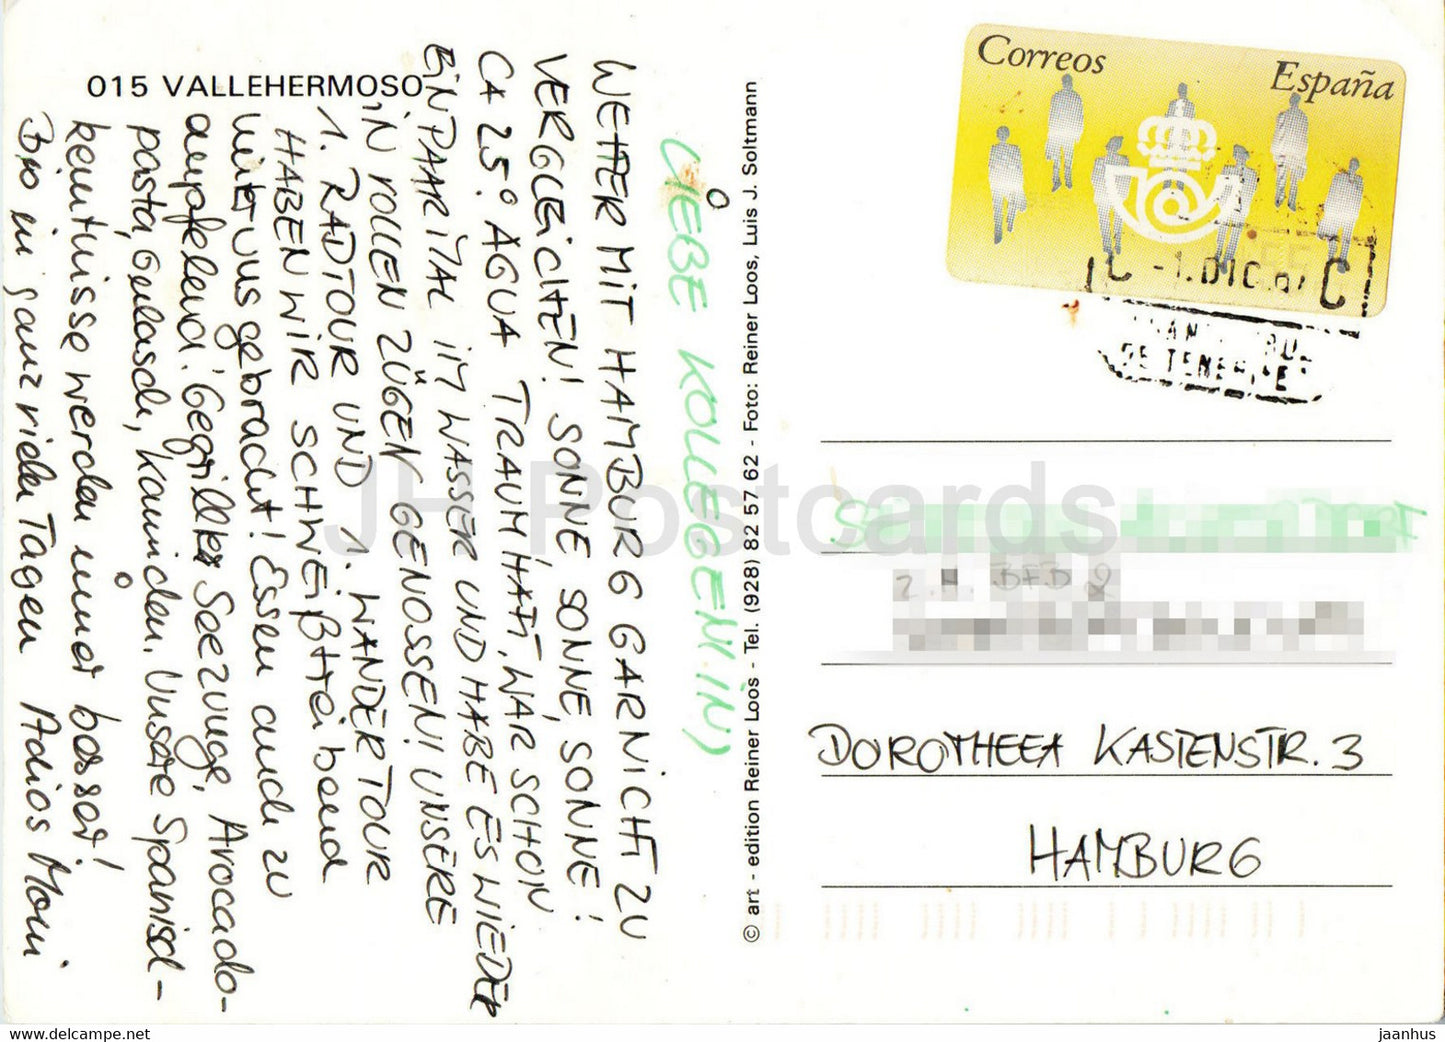 015 VALLEHERMOSO
LIEBE KOLLEGEN(IN)
WETTER MIT HAMBURG GARNICHT ZU
VERGLEICHEN! SONNE, SONNE, SONNE, SONNE!
CA 25° AGUA TRAUMHAFT, WAR SCHON
EIN PAAR MAL IM WASSER UND HABE ES WIEDER
IN VOLLEN ZÜGEN GENOSSEN! UNSERE
1. RADTOUR UND 1. WANDERTOUR
HABEN WIR SCHWEIßtreibend
hinter uns gebracht! Essen auch zu
empfehlen! Gegrillte Seezunge, Avocado-
pasta, Gulasch, Kaninchen. Unsere Spanisch-
kenntnisse werden immer besser!
Bis in ganz vielen Tagen Adios Moni
© art - edition Reiner Loos - Tel. (928) 82 57 62 - Foto: Reiner Loos, Luis J. Soltmann
Correos España
-1.DIC.
DE TENERIFE
Z.H. BFB 2
DOROTHEEA KASTENSTR. 3
HAMBURG
JH Postcards
www.delcampe.net
jaanhus